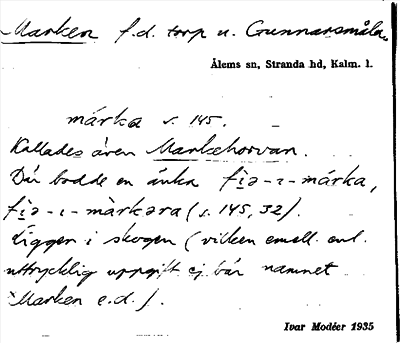 Marken f.d. torp u. Gunnarsmåla.
Ålems sn, Stranda hd, Kalm. l.
márka s. 145.
Kallades även Markehorvan.
Där bodde en änka fìə-ı-márka,
fìə-ı-màrkəra (s. 145, 32).
Ligger i skogen (vilken emell. enl.
uttrycklig uppgift ej bär namnet
Marken e.d.).
Ivar Modéer 1935